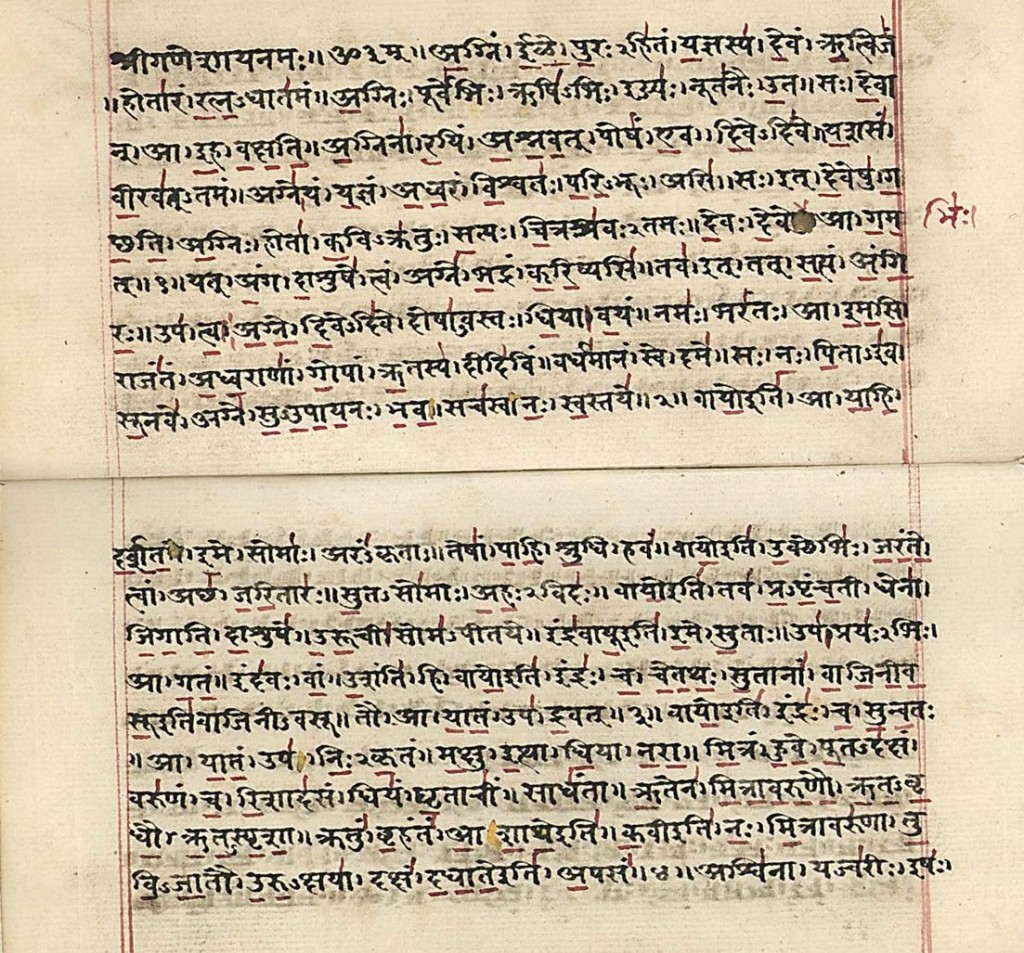 श्रीगणेशायनमः॥ॐ३म्॥अग्निं। ईळे। पुरःऽहितं। यज्ञस्य। देवं। ऋत्विजं
॥होतारं। रत्नऽधातमं॥अग्निः। पूर्वेभिः। ऋषिऽभिः। ईड्यः। नूतनैः। उत॥सः। देवा
न्। आ। इह। वक्षति॥अग्निना। रयिं। अश्नवत्। पोषं। एव। दिवेऽदिवे॥यशसं
वीरवत्ऽतमं॥अग्ने। यं। यज्ञं। अध्वरं। विश्वतः। परिऽभूः। असि॥सः। इत्। देवेषु। ग
छति। अग्निः। होता। कविऽक्रतुः। सत्यः। चित्रश्रवःऽतमः॥देवः। देवे आ। गम
त्॥१॥यत्। अंग। दाशुषे। त्वं। अग्ने। भद्रं। करिष्यसि॥तव। इत्। तत्। सत्यं। अंगि
रः॥उप। त्वा। अग्ने। दिवेऽदिवे। दोषाऽवस्तः। धिया। वयं॥नमः। भरंतः। आ। इमसि
राजंतं। अध्वराणां। गोपां। ऋतस्य। दीदिविं॥वर्धमानं। स्वे। दमे॥सः। नः। पिताऽइव।
सूनवे। अग्ने। सुऽउपायनः। भव॥सचस्व। नः। स्वस्तये॥२॥वायोइति। आ। याहि।
भिः।
दर्शत। इमे। सोमाः। अरंऽकृताः॥तेषां। पाहि। श्रुधि। हवं॥वायोइति। उक्थेभिः। जरंते।
त्वां। अछ। जरितारः॥सुतऽसोमाः। अहःऽविदः॥वायोइति। तव। प्रऽपृंचती। धेना।
जिगाति। दाशुषे॥उरूची। सोमऽपीतये॥इंद्रवायूइति। इमे। सुताः॥उप। प्रयःऽभिः।
आ। गतं॥इंदवः। वां। उशंति। हि। वायोइति। इंद्रः। च। चेतथः। सुतानां। वाजिनीव
सूइतिवाजिनीऽवसू॥तौ। आ। यातं। उप। द्रवत्॥३॥वायोइति। इंद्रः। च। सुन्वतः
॥आ। यातं। उप। निःऽकृतं॥मक्षु। इत्था। धिया। नरा॥मित्रं। हुवे। पूतऽदक्षं।
वरुणं। च। रिशादसं। धियं। घृताचीं। साधंता॥ऋतेन। मित्रावरुणौ। ऋतऽवृ
धौ। ऋतऽस्पृशा॥क्रतुं। बृहंतं। आ शाथेइति॥कवीइति। नः। मित्रावरुणा। तु
विऽजातौ। उरुऽक्षया। दक्षं। दधातेइति। अपसं॥४॥अश्विना। यज्वरीः। इषः।